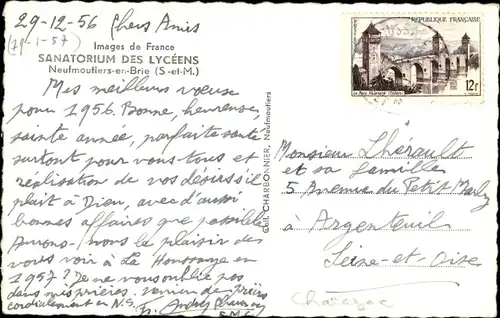 29-12-56 Chers Amis
(29-1-57)
Images de France
SANATORIUM DES LYCÉENS
Neufmoutiers-en-Brie (S-et-M.)
Mes meilleurs vœux
pour 1956. Bonne, heureuse,
sainte année, parfaite santé
surtout pour vous tous et
réalisation de vos désirs s'il
plaît à Dieu, avec d'aussi
bonnes affaires que possible
Aurons-nous le plaisir de
vous voir à La
1957? Je ne vous oublie pas
dans mes prières. Union de prières
cordialement en N.S. Fr. André
F.M.C.
Gél. CHARBONNIER, Neufmoutiers
RÉPUBLIQUE FRANÇAISE
POSTES
Le Pont Valentré (Cahors)
12f
Monsieur Lhérault
et sa famille
5 Avenue du Petit Marly
à Argenteuil
Seine-et-Oise